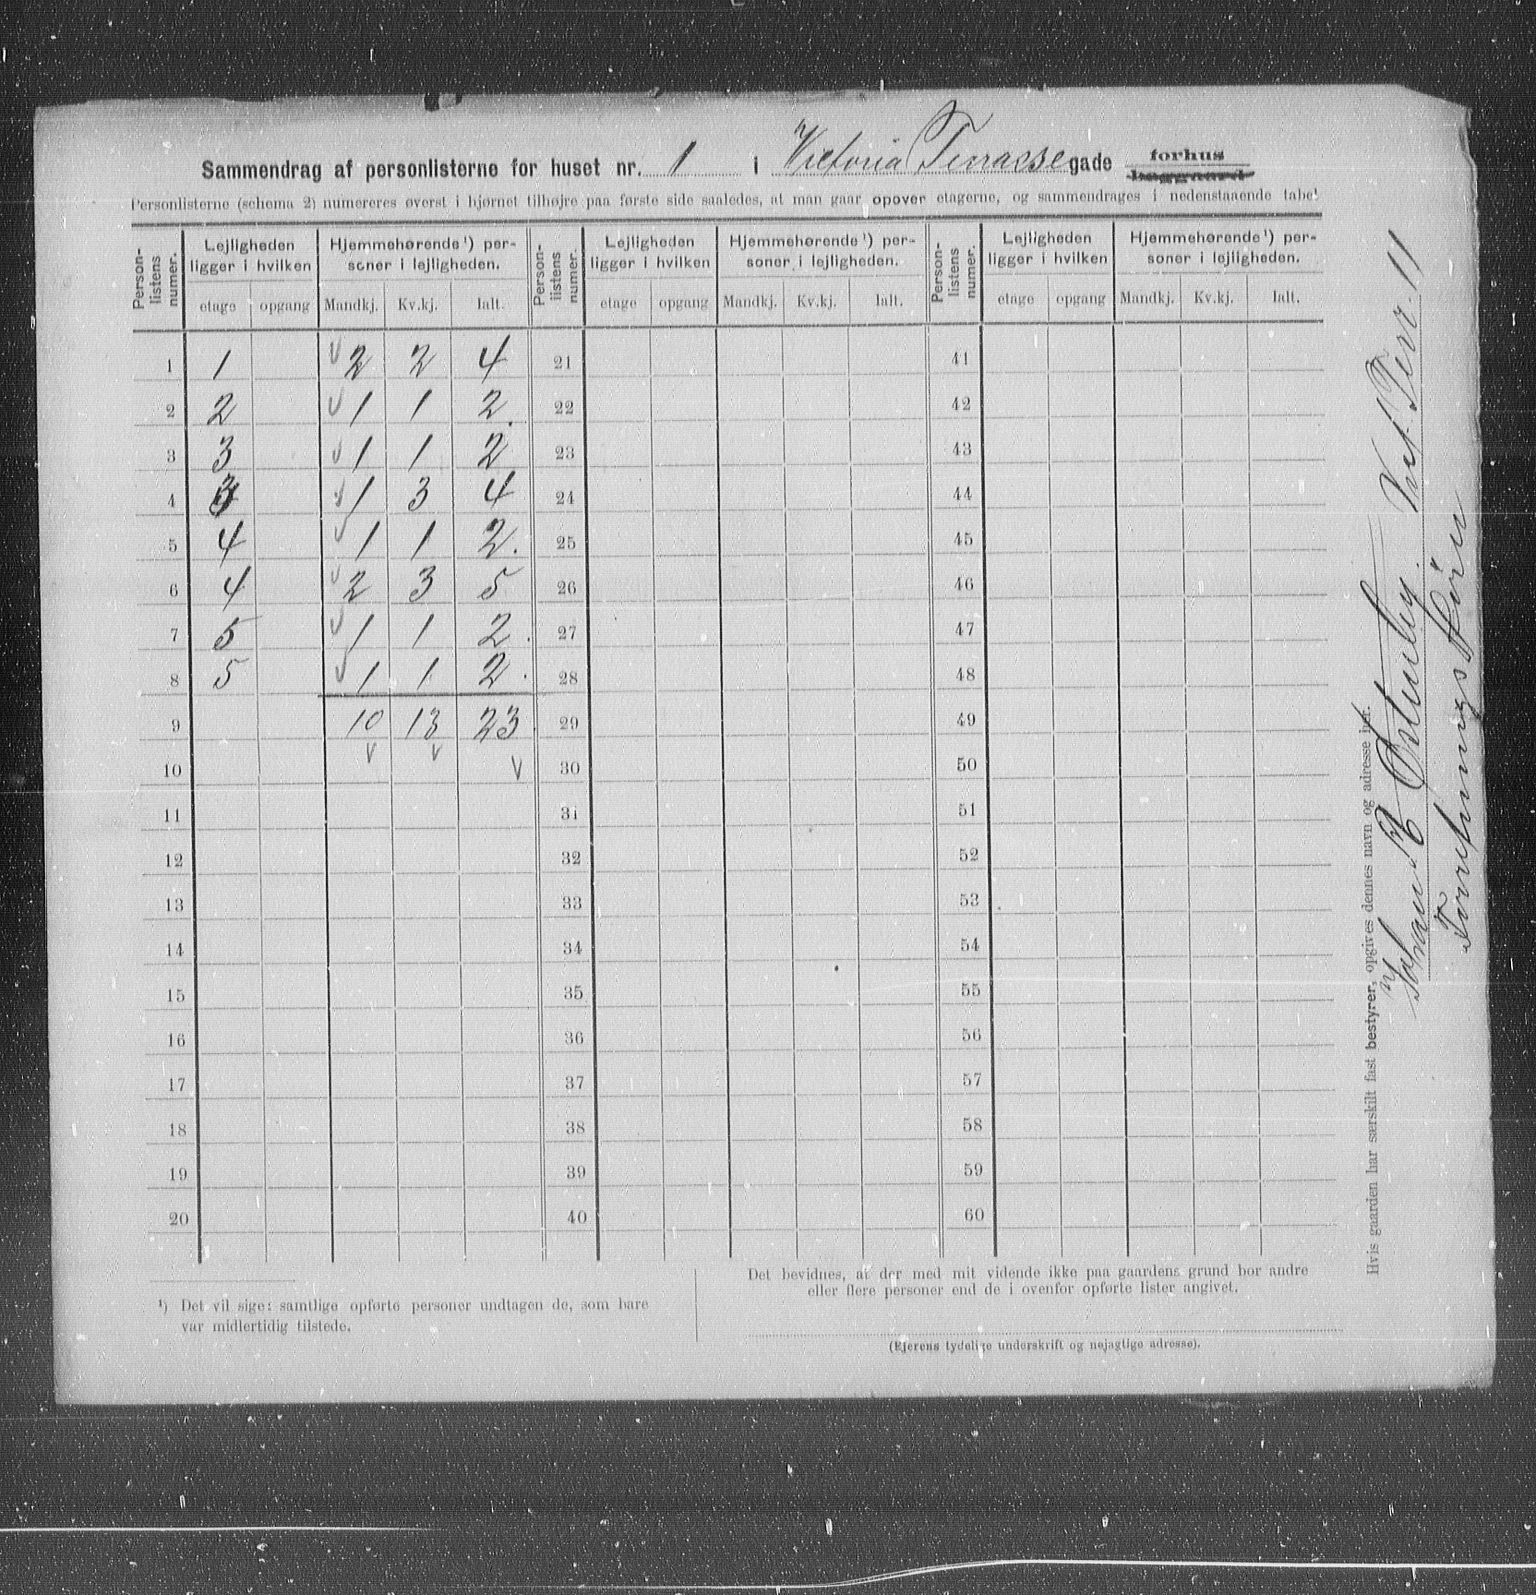 Sammendrag af personlisterne for huset nr. 1 i Victoria Terrasse gade forhus baggaard.
Personlisterne (schema 2) numereres øverst i hjørnet tilhøjre paa første side saaledes, at man gaar opover etagerne, og sammendrages i nedenstaaende tabel
Person-listens numer. Lejligheden ligger i hvilken Hjemmehørende ¹) personer i lejligheden. Person-listens numer. Lejligheden ligger i hvilken Hjemmehørende ¹) personer i lejligheden. Person-listens numer. Lejligheden ligger i hvilken Hjemmehørende ¹) personer i lejligheden.
etage opgang Mandkj. Kv.kj. Ialt. etage opgang Mandkj. Kv.kj. Ialt. etage opgang Mandkj. Kv.kj. Ialt.
1 1 2 2 4 21 41
2 2 1 1 2. 22 42
3 3 1 1 2 23 43
4 3 1 3 4 24 44
5 4 1 1 2. 25 45
6 4 2 3 5 26 46
7 5 1 1 2. 27 47
8 5 1 1 2. 28 48
9 10 13 23 29 49
10 30 50
11 31 51
12 32 52
13 33 53
14 34 54
15 35 55
16 36 56
17 37 57
18 38 58
19 39 59
20 40 60
¹) Det vil sige: samtlige opførte personer undtagen de, som bare
var midlertidig tilstede.
Det bevidnes, at der med mit vidende ikke paa gaardens grund bor andre
eller flere personer end de i ovenfor opførte lister angivet.
(Ejerens tydelige underskrift og nøjagtige adresse).
Hvis gaarden har særskilt fast bestyrer, opgives dennes navn og adresse her.
Johan E Østenby. Vict Terr. 11